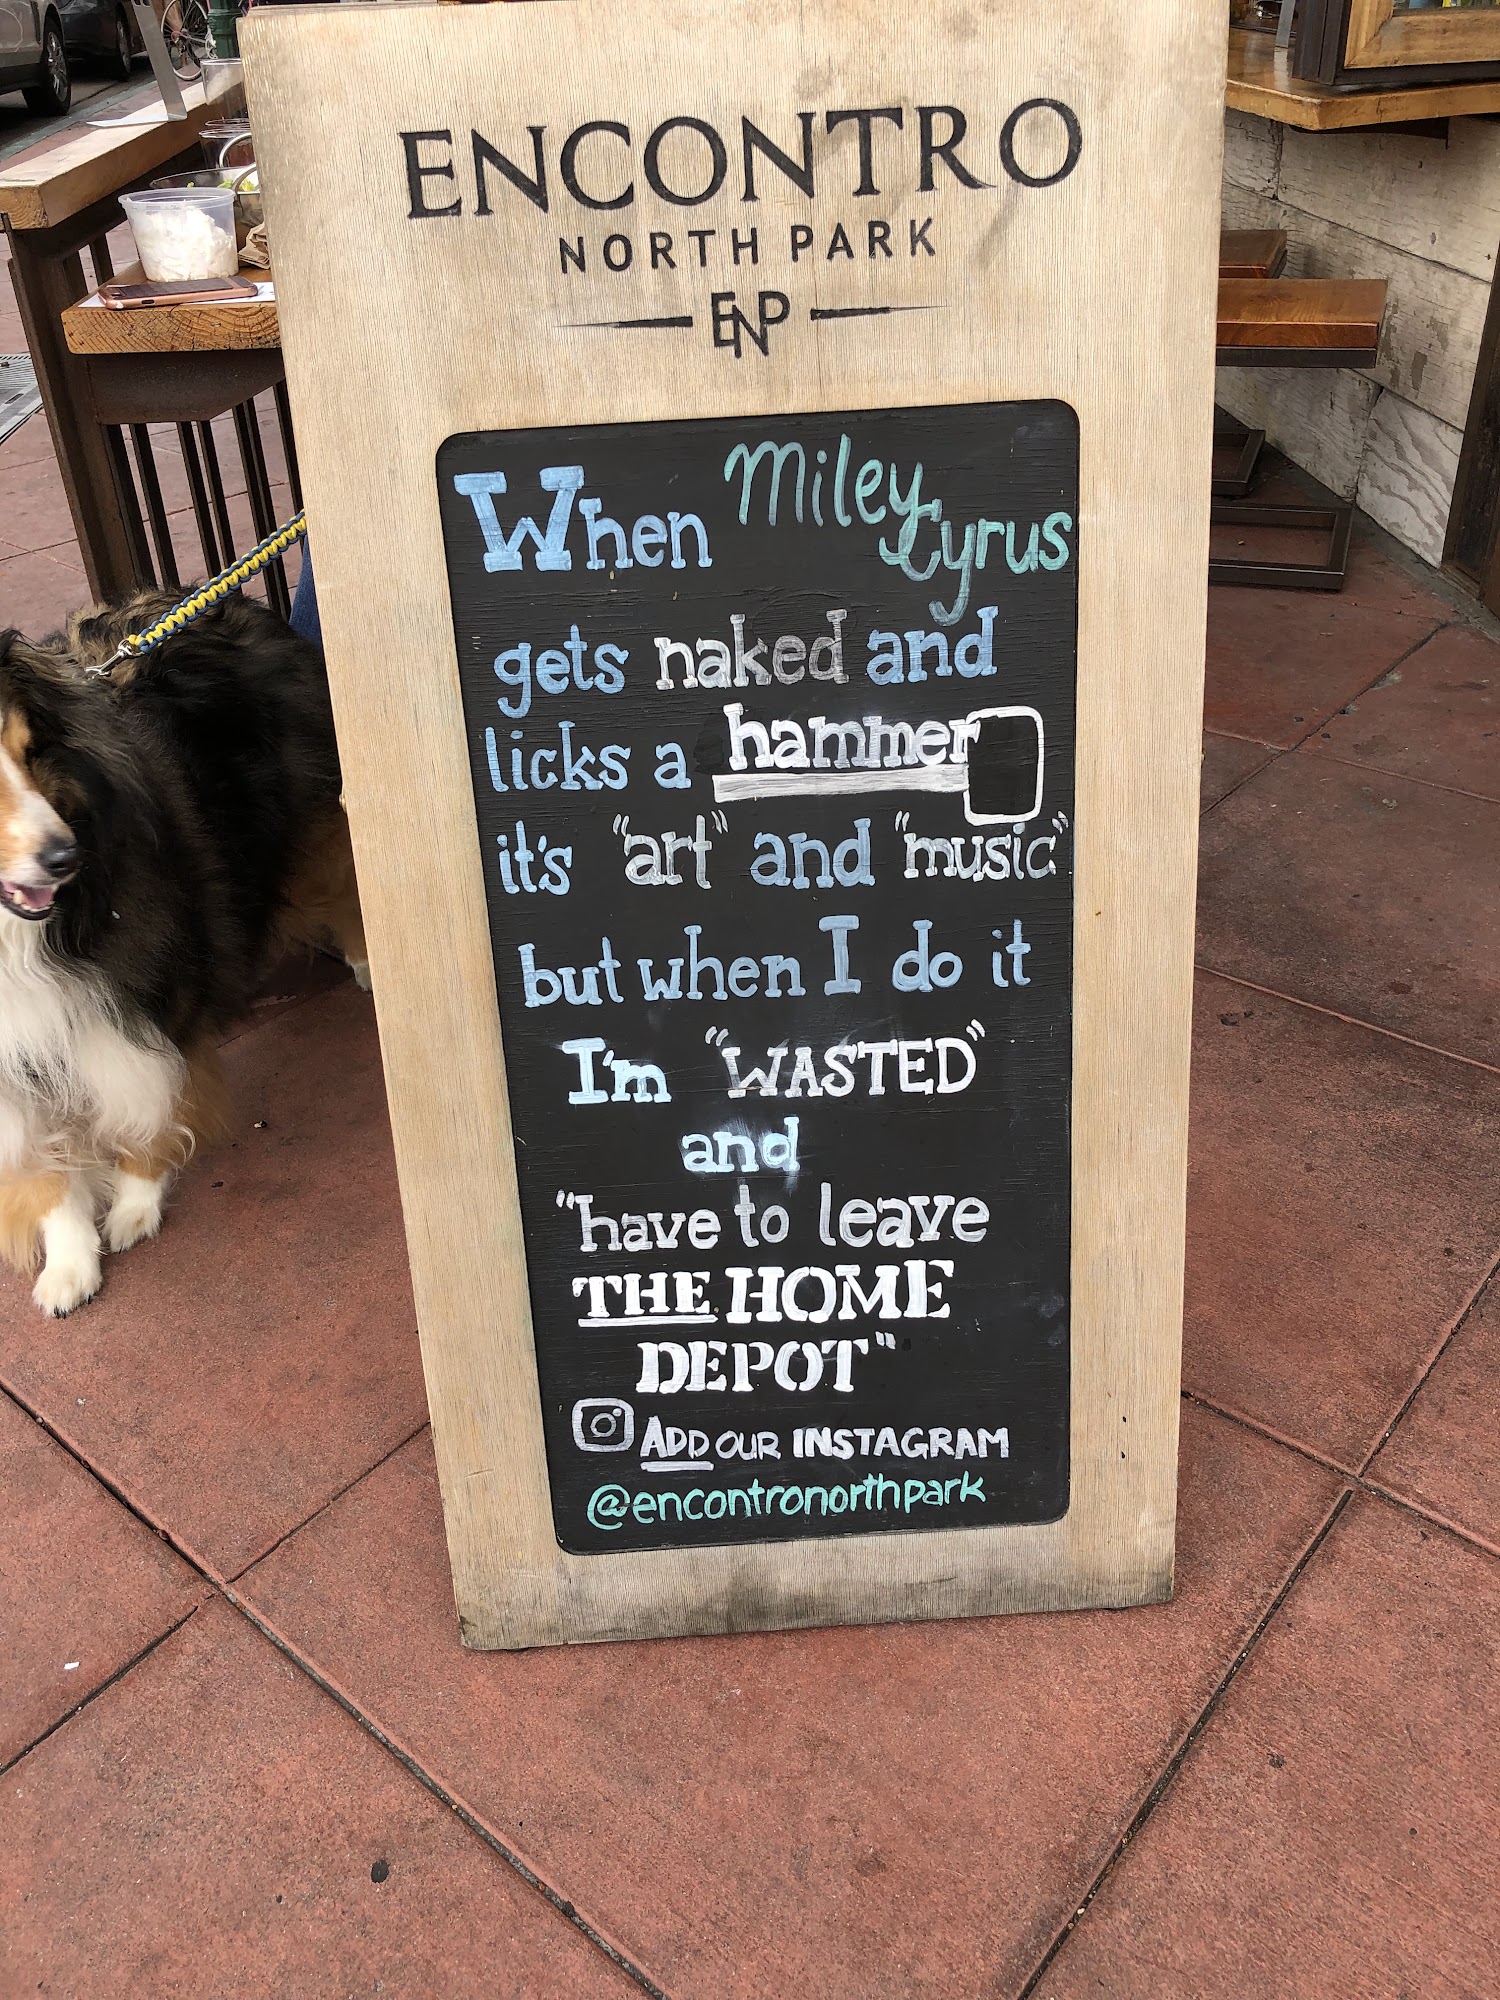 ENCONTRO
NORTH PARK
ENP
When Miley Cyrus
gets naked and
licks a hammer
it's "art" and "music"
but when I do it
I'm "WASTED"
and
"have to leave
THE HOME
DEPOT"
ADD OUR INSTAGRAM
@encontronorthpark